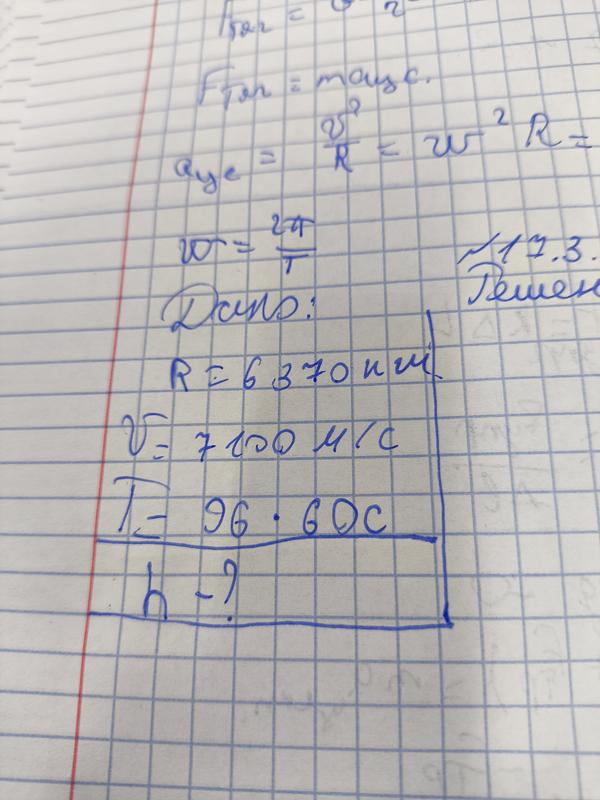 Fтяг =
Fтяг = maцс.
aцс = v²/R = w² R =
w = 2π/T
№17.3.
Дано:
Решен
R = 6370 км
V = 7100 м/с
T = 96 · 60 с
h - ?